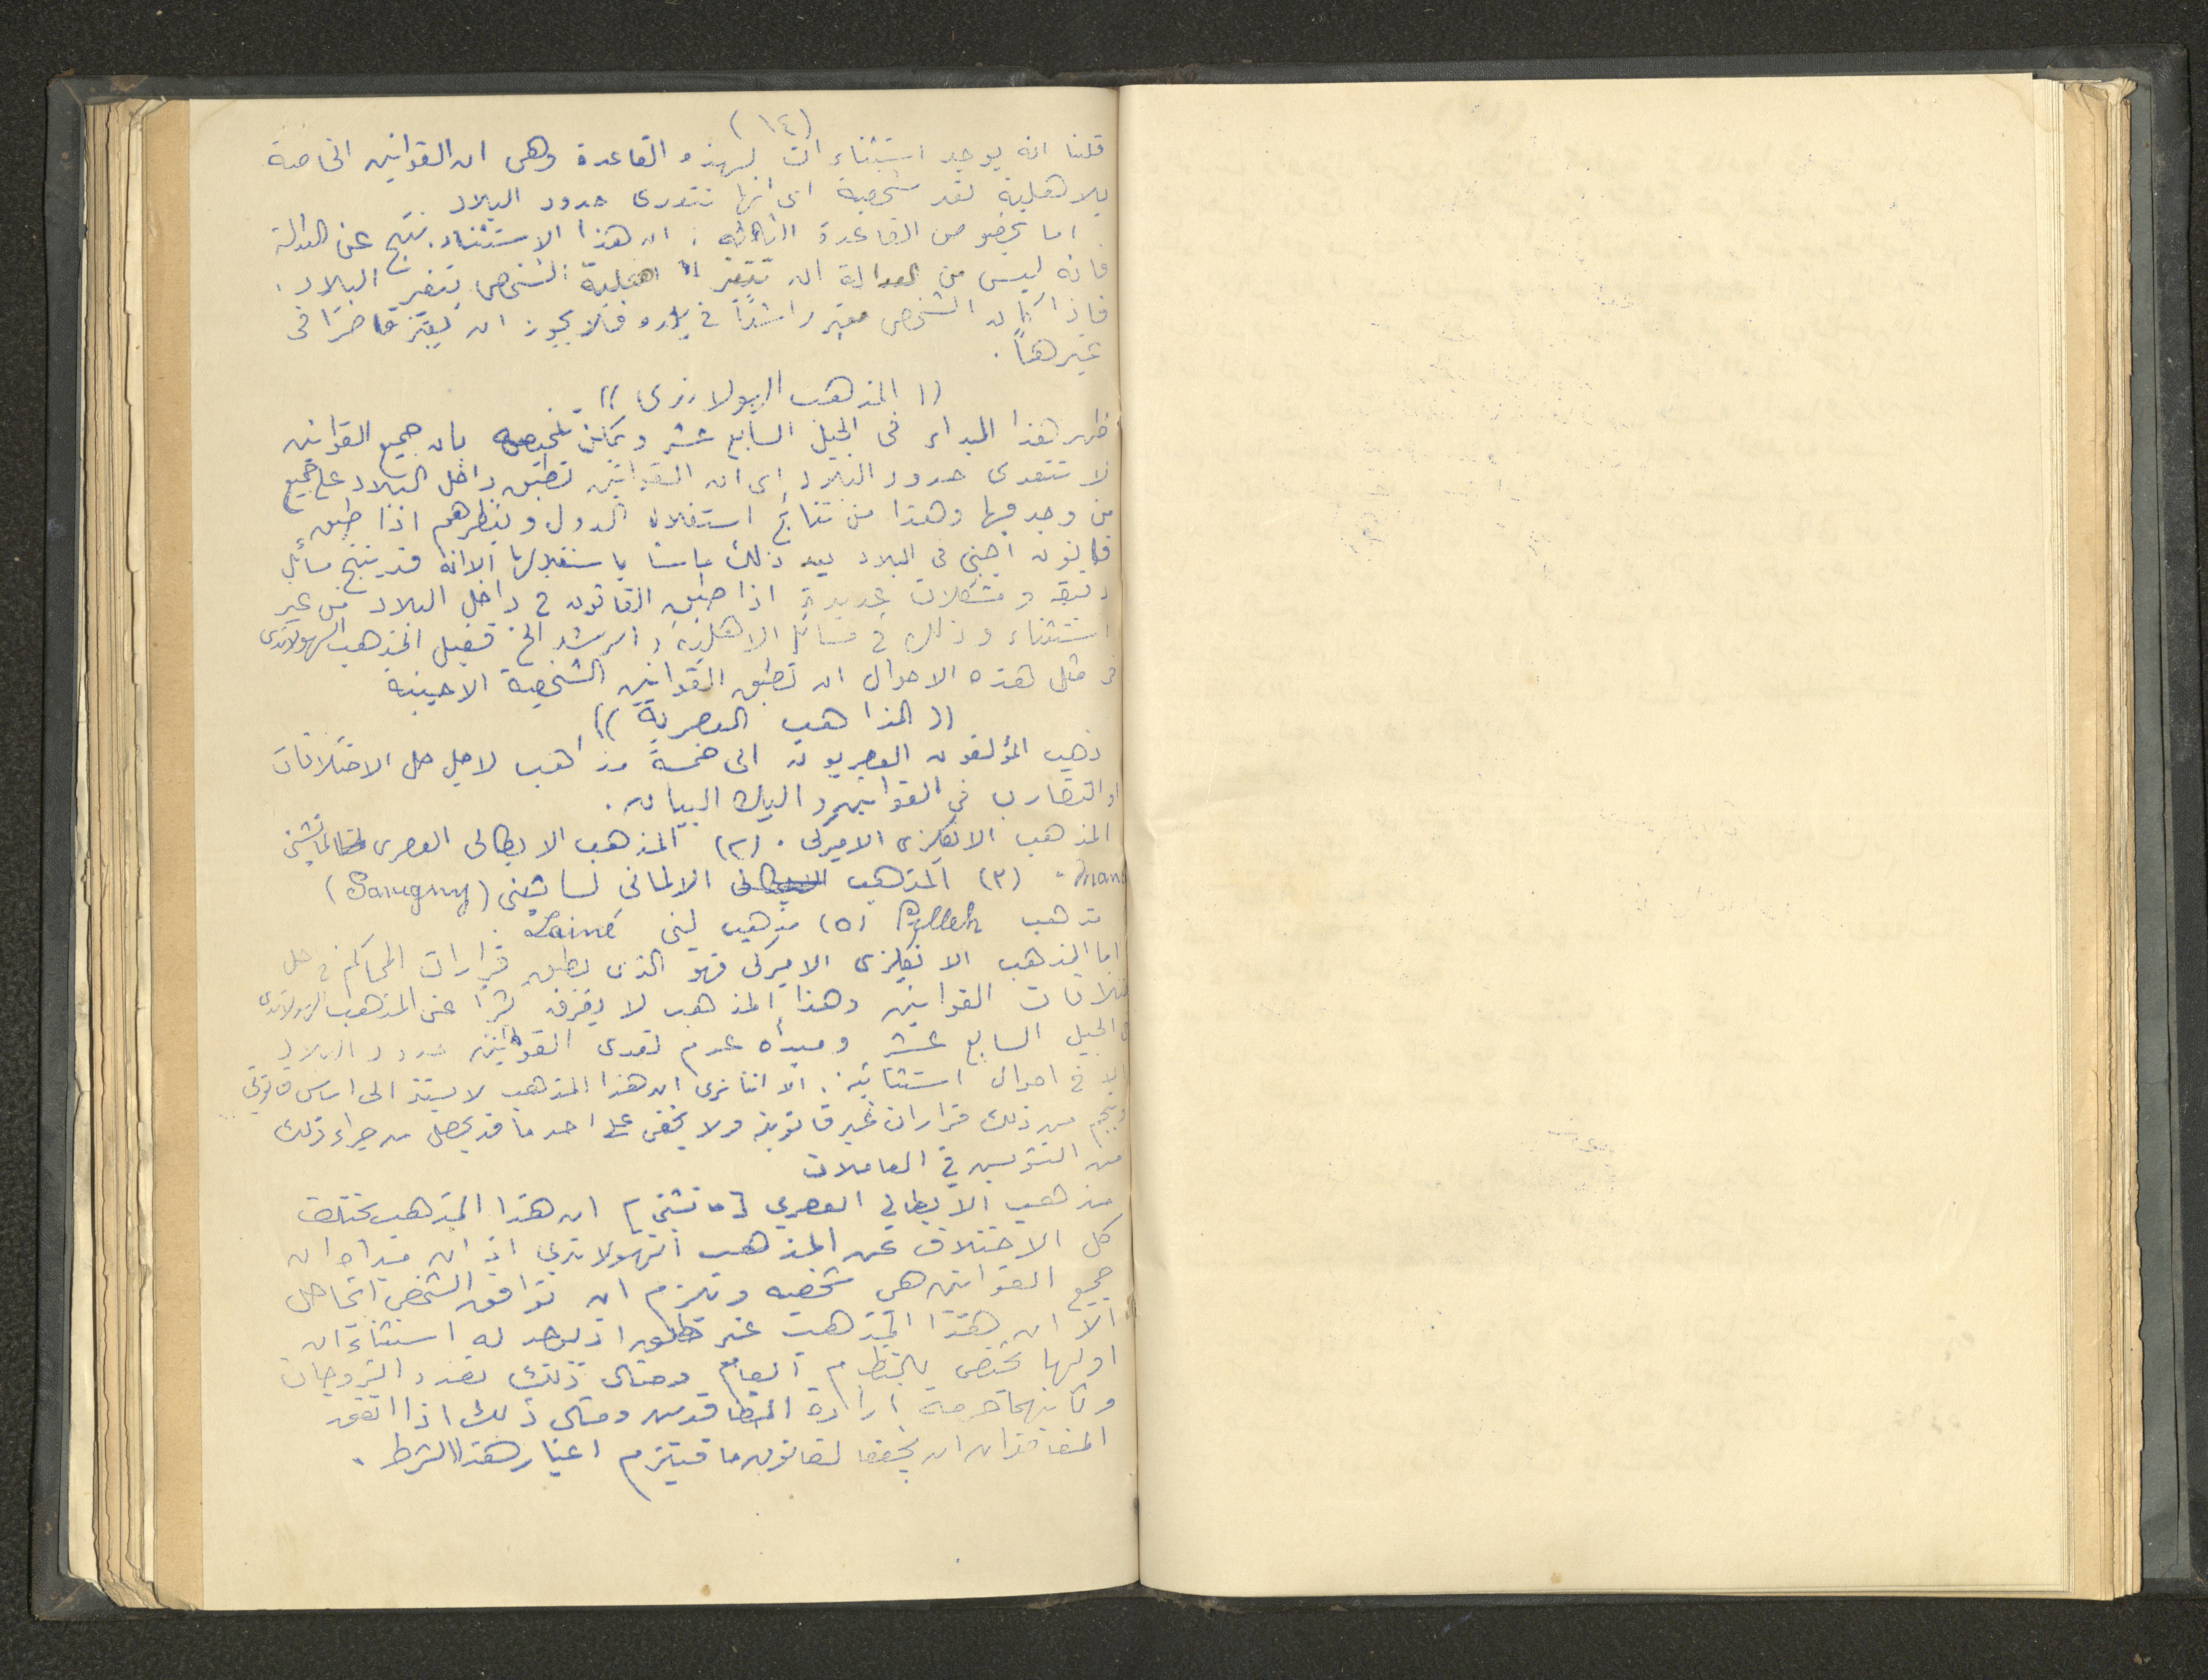 (١٤)
قلنا انه يوجد استثناءات لهذه القاعدة وهى ان القوانين الخاصة
بالاهلية تعد شخصية اى انها تتعدى حدود البلاد
اما بخصوص القاعدة الثالثة : ان هذا الاستثناء ينتج عن العدالة
فانه ليس من العدالة ان تتغير اهلية الشخص بتغير البلاد .
فاذا كان الشخص معتبر راشداً في بلاده فلا يجوز ان يعتبر قاصراً في
غيرها .
(( المذهب الهولاندى ))
ظهر هذا المبداء فى الجيل السابع عشر ويمكن تلخيصه بان جميع القوانين
لا تتعدى حدود البلاد اى ان القوانين تطبق داخل البلاد على جميع
من وجد فيها وهذا من نتائج استقلال الدول وبنظرهم اذا طبق
قانون اجنبي في البلاد يعد ذلك ماسا باستقلالها الا انه قد ينتج مسائل
دقيقة ومشكلات عديدة اذا طبق القانون في داخل البلاد من غير
استثناء وذلك في مسائل الاهلية والرشد الخ فقبل المذهب الهولاندى
فى مثل هذه الاحوال ان تطبق القوانين الشخصية الاجنبية
(( المذاهب العصرية ))
ذهب المؤلفون العصريون الى خمسة مذاهب لاجل حل الاختلافات
او التضارب في القوانين واليك البيان .
المذهب الانكليزى الاميركى . (٢) المذهب الايطالى العصرى لمانشينى
(٣) المذهب الالمانى لسافينى (Savigny)
مذهب Pillet (٥) مذهب لينى Lainé .
اما المذهب الانكليزى الاميركى فهو الذى يطبق قرارات المحاكم في حل
اختلافات القوانين وهذا المذهب لا يفرق كثيرا عن المذهب الهولاندى
فى الجيل السابع عشر ومبدأه عدم تعدى القوانين حدود البلاد
الا فى احوال استثنائية . الا اننا نرى ان هذا المذهب لا يستند الى اساس قانونى
وينجم من ذلك قرارات غير قانونية ولا يخفى على احد ما قد يحصل من جراء ذلك
من التشويش في المعاملات
مذهب الايطالي العصري [مانشيني] ان هذا المذهب يختلف
كل الاختلاف عن المذهب الهولاندي اذ ان مبداه ان
جميع القوانين هي شخصيه ويلزم ان توافق الشخص
الا ان هذا المذهب غير مطلق اذ يوجد له استثناءان
اولها تختص بالنظام العام ومثال ذلك تعدد الزوجات
وثانيهما حرمة ارادة المتعاقدين ومثال ذلك اذا اتفق
المتعاقدان ان يخضعا لقانون ما فيلتزم اعتبار هذا الشرط .